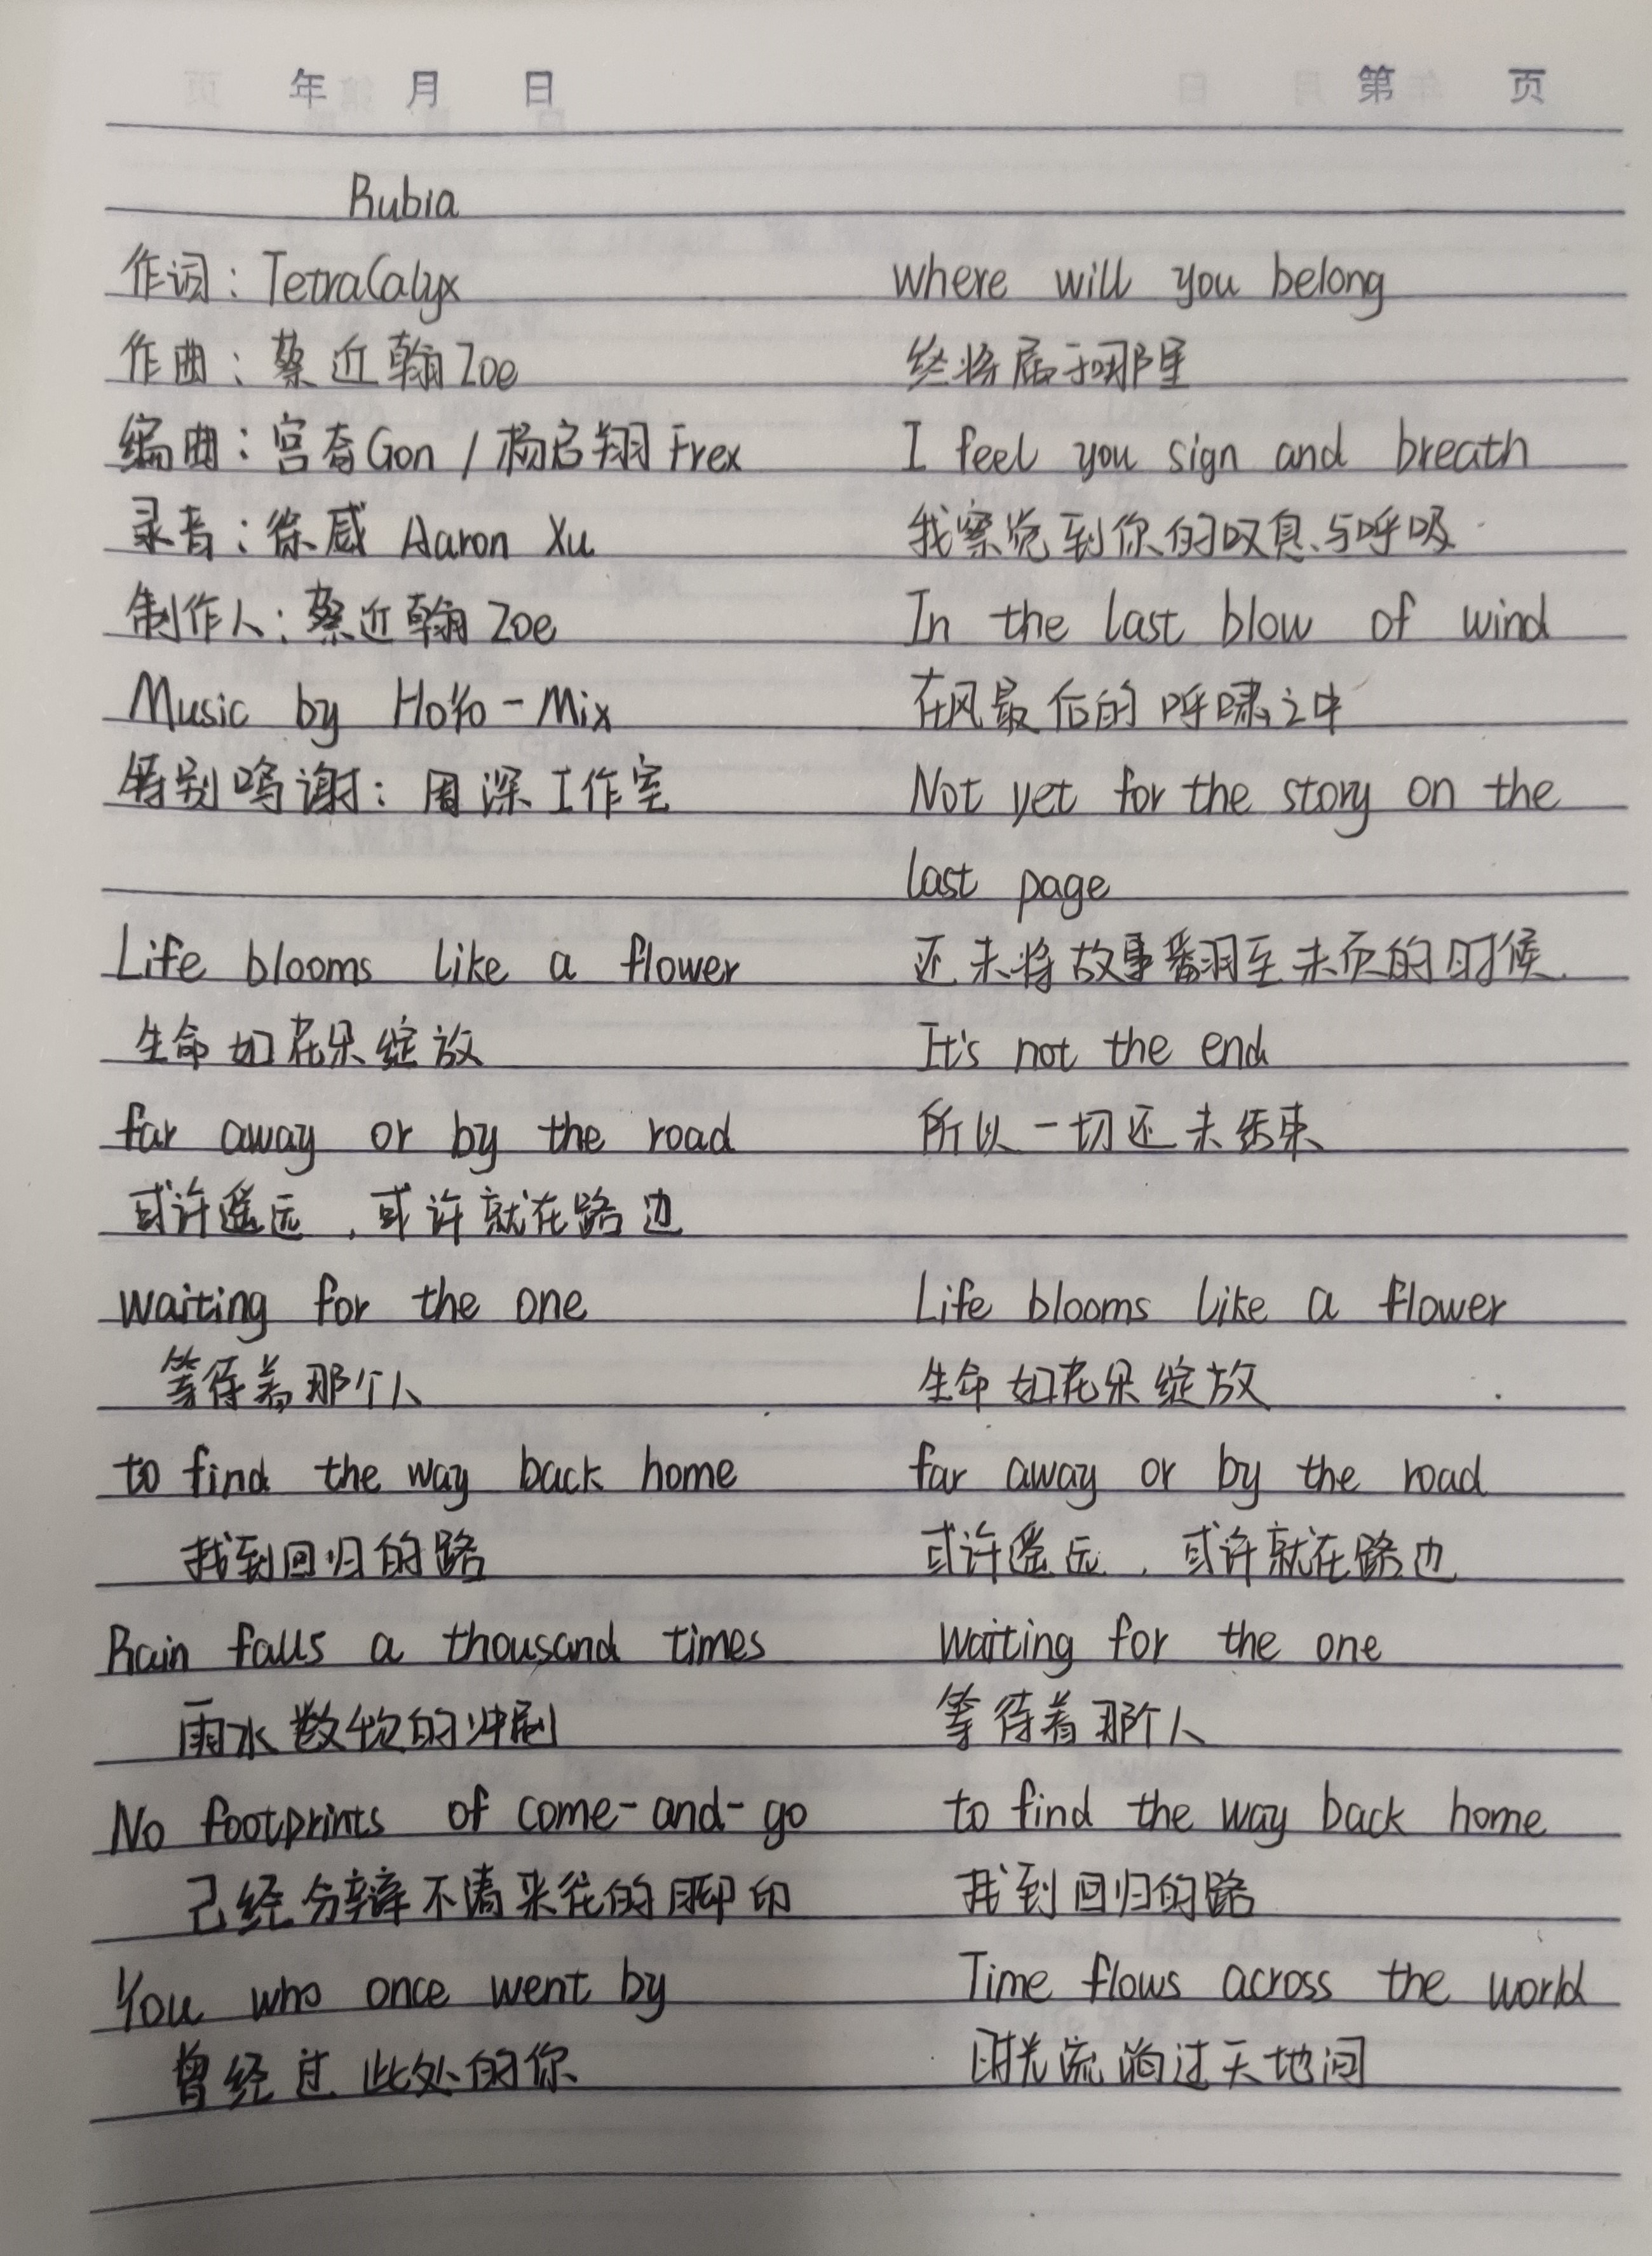 年 月 日
第 页
Rubia
作词：TetraCalyx
作曲：蔡近翰Zoe
编曲：宫奇Gon / 杨启翔Frex
录音：徐威 Aaron Xu
制作人：蔡近翰Zoe
Music by HoYo-Mix
特别鸣谢：周深工作室
Life blooms like a flower
生命如花朵绽放
far away or by the road
或许遥远，或许就在路边
waiting for the one
等待着那个人
to find the way back home
找到回归的路
Rain falls a thousand times
雨水数次的冲刷
No footprints of come-and-go
已经分辨不清来往的脚印
You who once went by
曾经过此处的你
where will you belong
终将属于哪里
I feel you sign and breath
我察觉到你的叹息与呼吸
In the last blow of wind
在风最后的呼啸之中
Not yet for the story on the
last page
还未将故事翻至末页的时候
It's not the end
所以一切还未结束
Life blooms like a flower
生命如花朵绽放
far away or by the road
或许遥远，或许就在路边
waiting for the one
等待着那个人
to find the way back home
找到回归的路
Time flows across the world
时光流淌过天地间